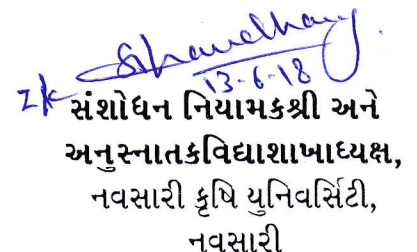 13-6-18
સંશોધન નિયામકશ્રી અને
અનુસ્નાતકવિદ્યાશાખાધ્યક્ષ,
નવસારી કૃષિ યુનિવર્સિટી,
નવસારી